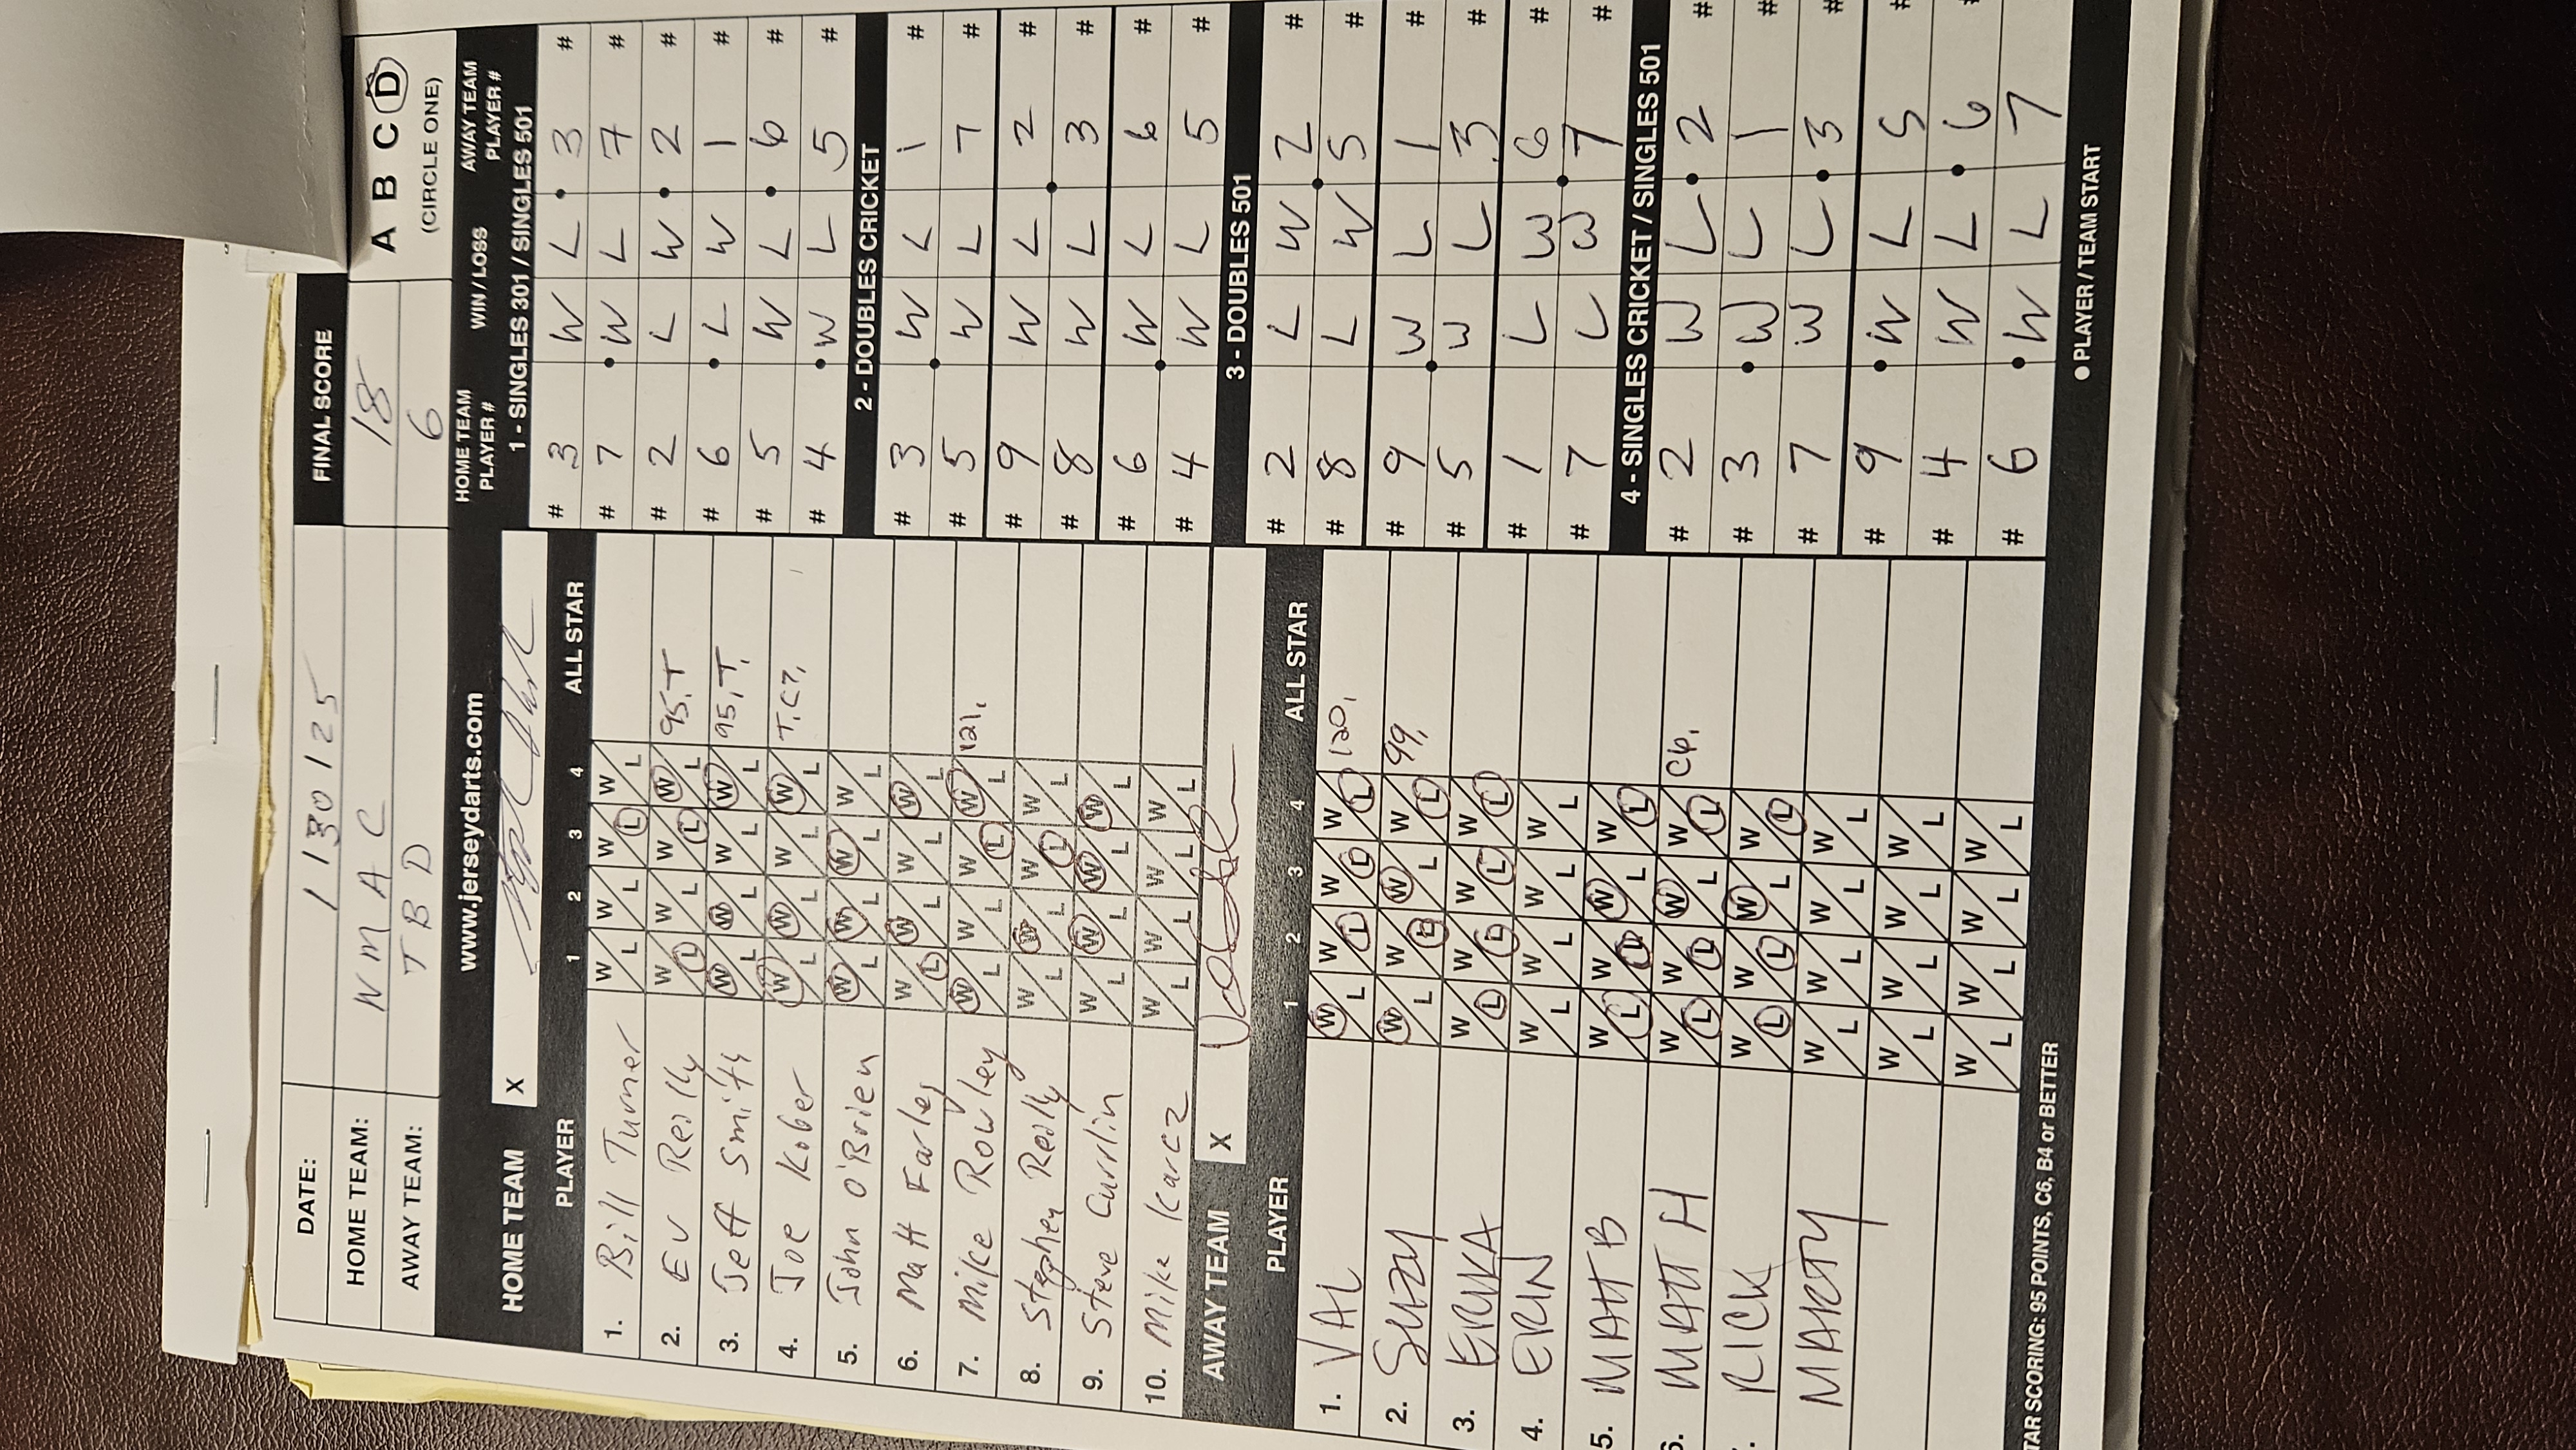 DATE: 1 130 125
HOME TEAM: N M A C
AWAY TEAM: T B D
FINAL SCORE
18
6
A B C D
(CIRCLE ONE)
www.jerseydarts.com
HOME TEAM X
PLAYER 1 2 3 4 ALL STAR
1. Bill Turner W L W L W L W L
2. Ev Reilly W L W L W L W L 95, T
3. Jeff Smith W L W L W L W L 95, T,
4. Joe Kober W L W L W L W L T, C7,
5. John O'Brien W L W L W L W L
6. Matt Farley W L W L W L W L
7. Mike Rowley W L W L W L W L 121,
8. Stephen Reilly W L W L W L W L
9. Steve Currlin W L W L W L W L
10. Mike Karcz W L W L W L W L
AWAY TEAM X
PLAYER 1 2 3 4 ALL STAR
1. VAL W L W L W L W L 120,
2. SUZY W L W L W L W L 99,
3. ERIKA W L W L W L W L
4. ERIN W L W L W L W L
5. MATT B W L W L W L W L
6. MATT H W L W L W L W L C6,
. RICK W L W L W L W L
MARTY W L W L W L W L
W L W L W L W L
W L W L W L W L
TAR SCORING: 95 POINTS, C6, B4 or BETTER
HOME TEAM PLAYER # WIN / LOSS AWAY TEAM PLAYER #
1 - SINGLES 301 / SINGLES 501
# 3 W L • 3 #
# 7 • W L 7 #
# 2 L W • 2 #
# 6 • L W 1 #
# 5 W L • 6 #
# 4 • W L 5 #
2 - DOUBLES CRICKET
# 3 W L 1 #
# 5 W L 7 #
# 9 W L 2 #
# 8 W L 3 #
# 6 W L 6 #
# 4 W L 5 #
3 - DOUBLES 501
# 2 L W 2 #
# 8 L W 5 #
# 9 W L 1 #
# 5 W L 3 #
# 1 L W 6 #
# 7 L W 7 #
4 - SINGLES CRICKET / SINGLES 501
# 2 W L • 2 #
# 3 • W L 1 #
# 7 W L • 3 #
# 9 • W L 5 #
# 4 W L • 6 #
# 6 • W L 7
● PLAYER / TEAM START